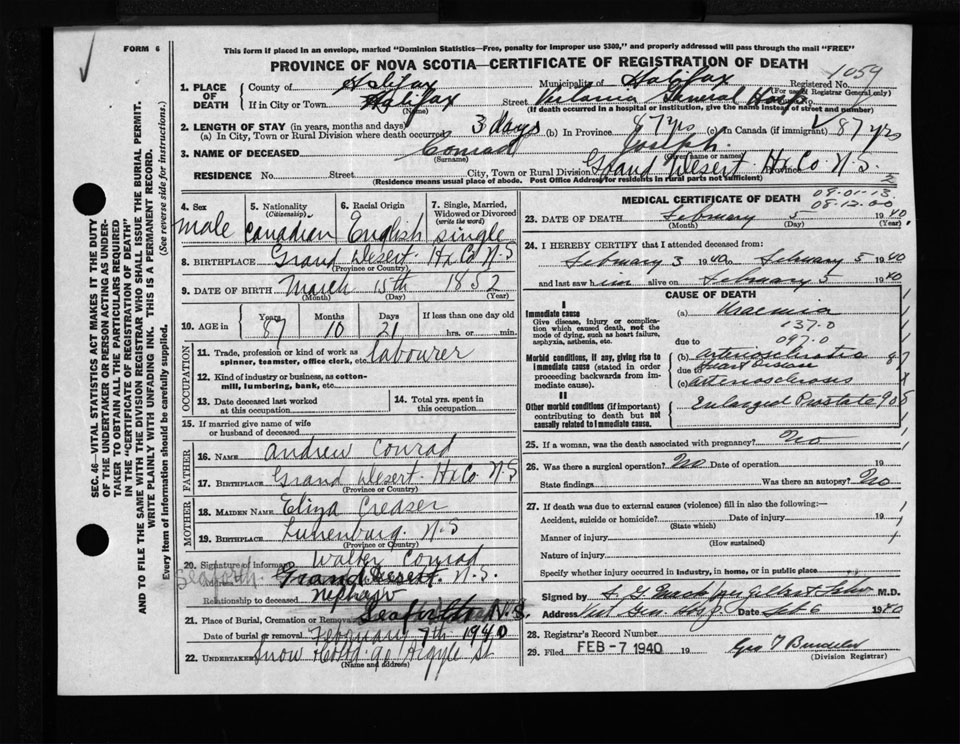 FORM 6
This form if placed in an envelope, marked "Dominion Statistics—Free, penalty for improper use $300," and properly addressed will pass through the mail "FREE"
PROVINCE OF NOVA SCOTIA—CERTIFICATE OF REGISTRATION OF DEATH
1059
1. PLACE OF DEATH
County of Halifax
Municipality of Halifax
Registered No.
(For use of Registrar General only)
If in City or Town Halifax
Street Victoria General Hosp No.
(If death occurred in a hospital or institution, give the name instead of street and number)
2. LENGTH OF STAY (in years, months and days)
(a) In City, Town or Rural Division where death occurred 3 days (b) In Province 87 yrs (c) In Canada (if immigrant) 87 yrs
3. NAME OF DECEASED Conrad Joseph
(Surname) (Given name or names)
RESIDENCE No. Street City, Town or Rural Division Grand Desert Hx Co Province N.S.
(Residence means usual place of abode. Post Office Address for residents in rural parts not sufficient)
4. Sex
male
5. Nationality (Citizenship)
Canadian
6. Racial Origin
English
7. Single, Married, Widowed or Divorced (write the word)
single
8. BIRTHPLACE Grand Desert Hx Co N.S
(Province or Country)
9. DATE OF BIRTH March 15th 1852
(Month) (Day) (Year)
10. AGE in
Years 87
Months 10
Days 21
If less than one day old
hrs. or min.
OCCUPATION
11. Trade, profession or kind of work as spinner, teamster, office clerk, etc. labourer
12. Kind of industry or business, as cotton-mill, lumbering, bank, etc.
13. Date deceased last worked at this occupation
14. Total yrs. spent in this occupation
15. If married give name of wife or husband of deceased
FATHER
16. NAME Andrew Conrad
17. BIRTHPLACE Grand Desert Hx Co N.S
(Province or Country)
MOTHER
18. MAIDEN NAME Eliza Creaser
19. BIRTHPLACE Lunenburg N.S
(Province or Country)
20. Signature of informant Walter Conrad
Seaforth
Address Grand Desert. N.S.
Relationship to deceased nephew
21. Place of Burial, Cremation or Removal Seaforth N.S.
Date of burial or removal February 7th 1940
22. UNDERTAKER Snow 90 Argyle St
(Name and address)
MEDICAL CERTIFICATE OF DEATH
09-01-13
08-12-00
23. DATE OF DEATH February 5 1940
(Month) (Day)
24. I HEREBY CERTIFY that I attended deceased from:
February 3 1940 to February 5 1940
and last saw him alive on February 5 1940
CAUSE OF DEATH
I
Immediate cause
Give disease, injury or complication which caused death, not the mode of dying, such as heart failure, asphyxia, asthenia, etc.
(a) Uraemia
137.0
due to
097.0
Morbid conditions, if any, giving rise to immediate cause (stated in order proceeding backwards from immediate cause).
(b) Arteriosclerotic
due to heart disease
(c) Arteriosclerosis
II
Other morbid conditions (if important) contributing to death but not causally related to immediate cause.
Enlarged Prostate
25. If a woman, was the death associated with pregnancy? No
26. Was there a surgical operation? No Date of operation 19
State findings Was there an autopsy? No
27. If death was due to external causes (violence) fill in also the following:
Accident, suicide or homicide? Date of injury 19
(State which)
Manner of injury
(How sustained)
Nature of injury
Specify whether injury occurred in industry, in home, or in public place
Signed by M.D.
Address Vict Gen Hosp Date Feb 6 1940
28. Registrar's Record Number
29. Filed FEB -7 1940 19
(Division Registrar)
SEC. 46—VITAL STATISTICS ACT MAKES IT THE DUTY OF THE UNDERTAKER OR PERSON ACTING AS UNDERTAKER TO OBTAIN ALL THE PARTICULARS REQUIRED IN THE "CERTIFICATE OF REGISTRATION OF DEATH" AND TO FILE THE SAME WITH THE DIVISION REGISTRAR WHO SHALL ISSUE THE BURIAL PERMIT.
WRITE PLAINLY WITH UNFADING INK. THIS IS A PERMANENT RECORD.
Every item of information should be carefully supplied. (See reverse side for instructions.)